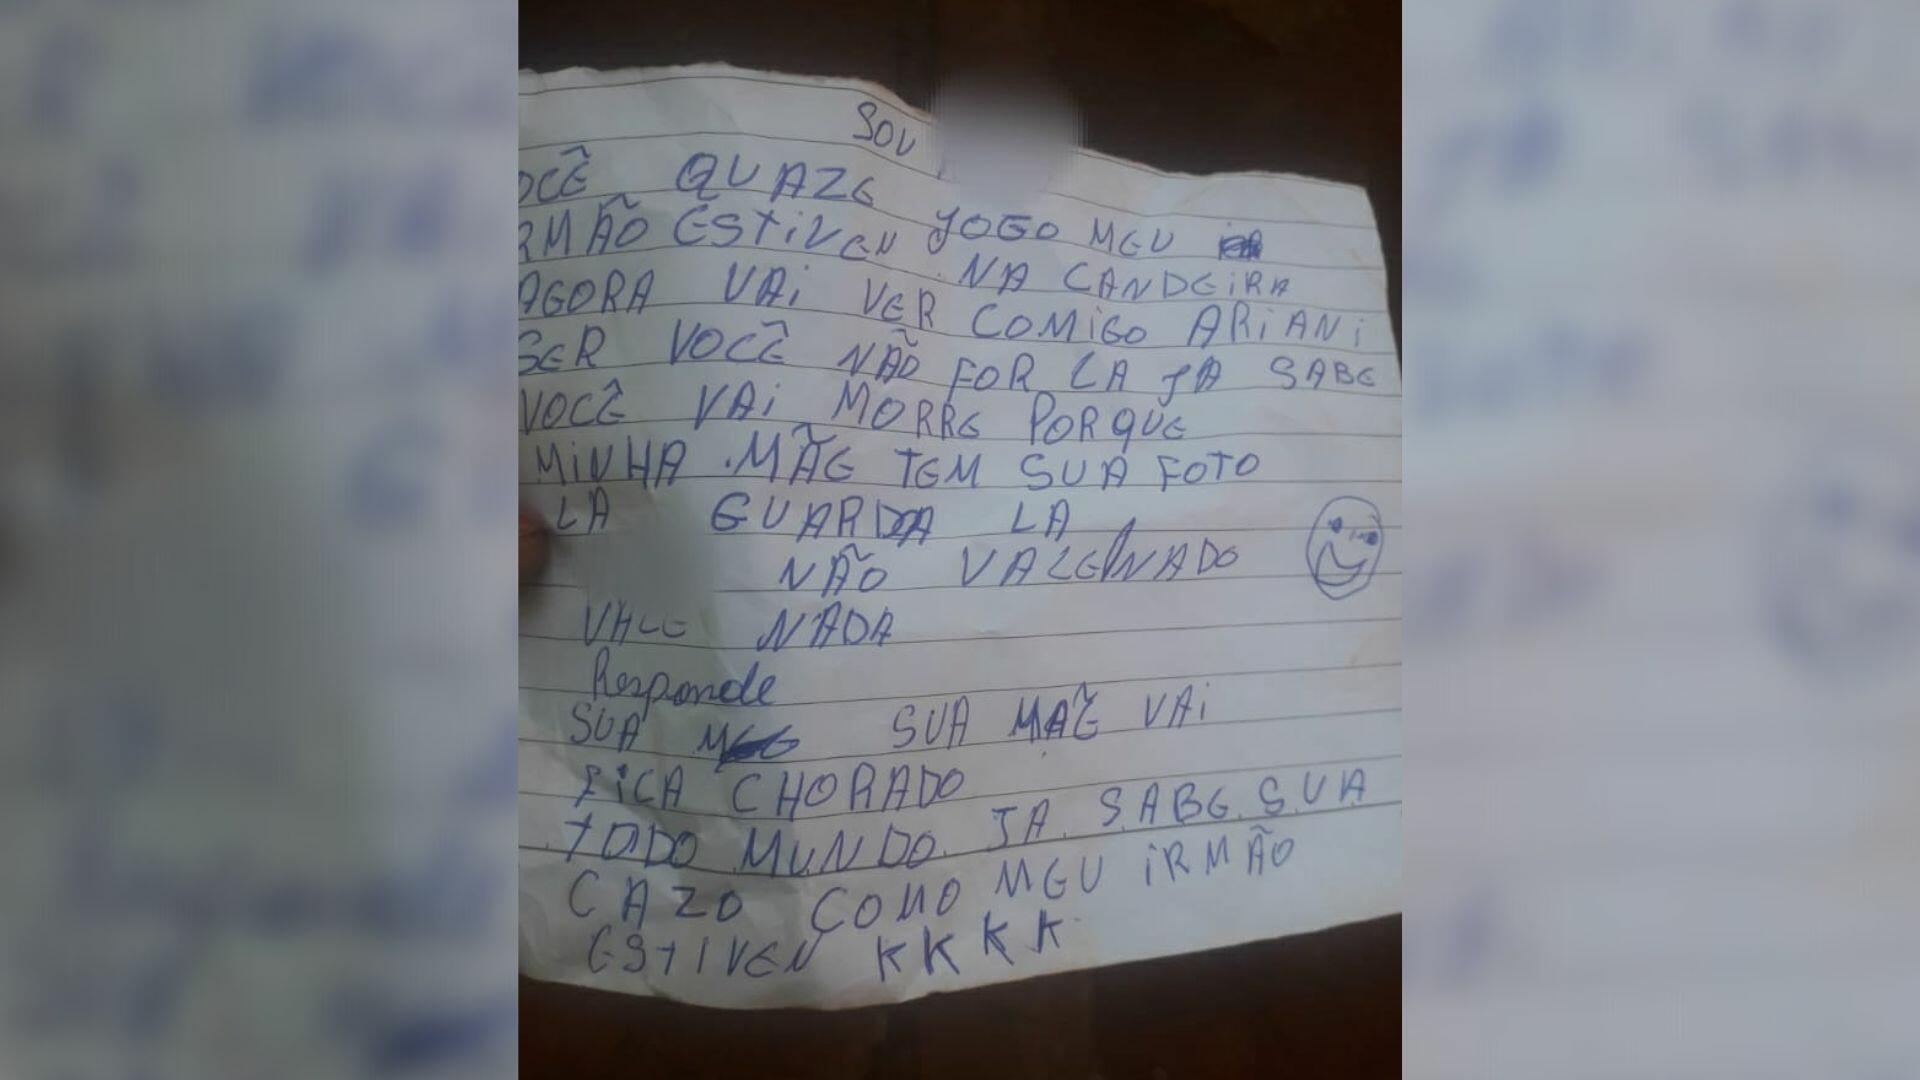 SOU
OCÊ QUAZE JOGO MEU
RMÃO ESTIVEN NA CANDEIRA
AGORA VAI VER COMIGO ARIANI
SER VOCÊ NÃO FOR LA JA SABE
VOCÊ VAI MORRE PORQUE
MINHA MÃE TEM SUA FOTO
LA GUARDA LA
NÃO VALE NADO
VALE NADA
Responde
SUA SUA MÃE VAI
FICA CHORADO
TODO MUNDO JA SABE SUA
CAZO COMO MEU IRMÃO
ESTIVEN KKKK